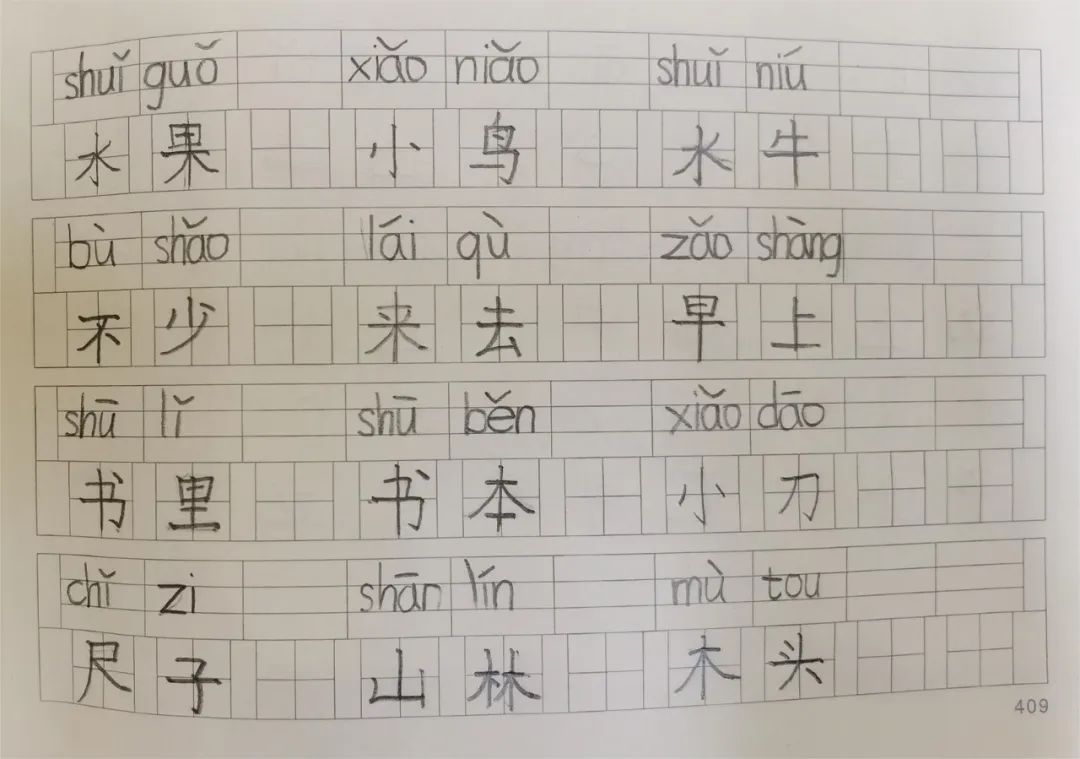 shuǐ guǒ xiǎo niǎo shuǐ niú
水果 小鸟 水牛
bù shǎo lái qù zǎo shàng
不少 来去 早上
shū lǐ shū běn xiǎo dāo
书里 书本 小刀
chǐ zi shān lín mù tou
尺子 山林 木头
409